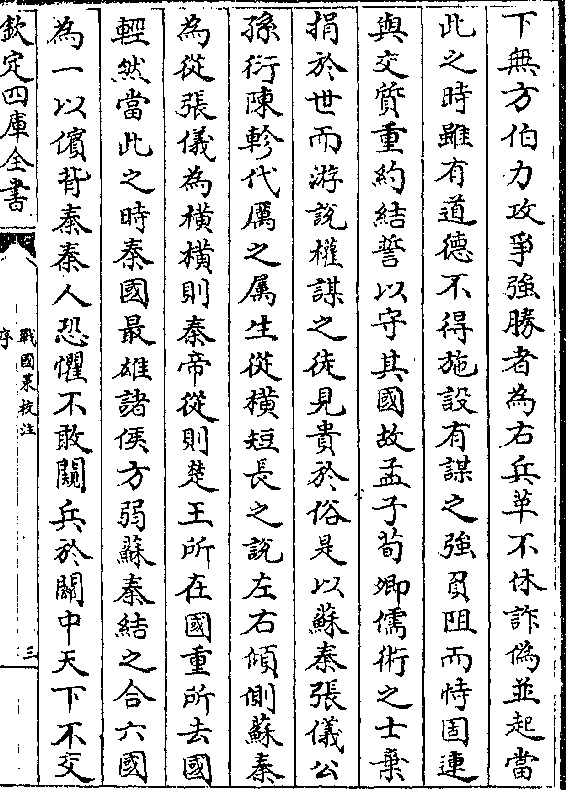 下無方伯力攻爭強勝者為右兵革不休詐偽並起當
此之時雖有道德不得施設有謀之強負阻而恃固連
與交質重約結誓以守其國故孟子荀卿儒術之士棄
捐於世而游說權謀之徒見貴於俗是以蘇秦張儀公
孫衍陳軫代厲之屬生從橫短長之說左右傾側蘇秦
為從張儀為橫橫則秦帝從則楚王所在國重所去國
輕然當此之時秦國最雄諸侯方弱蘇秦結之合六國
為一以儐背秦秦人恐懼不敢闚兵於關中天下不交
欽定四庫全書
戰國策校注
序
三